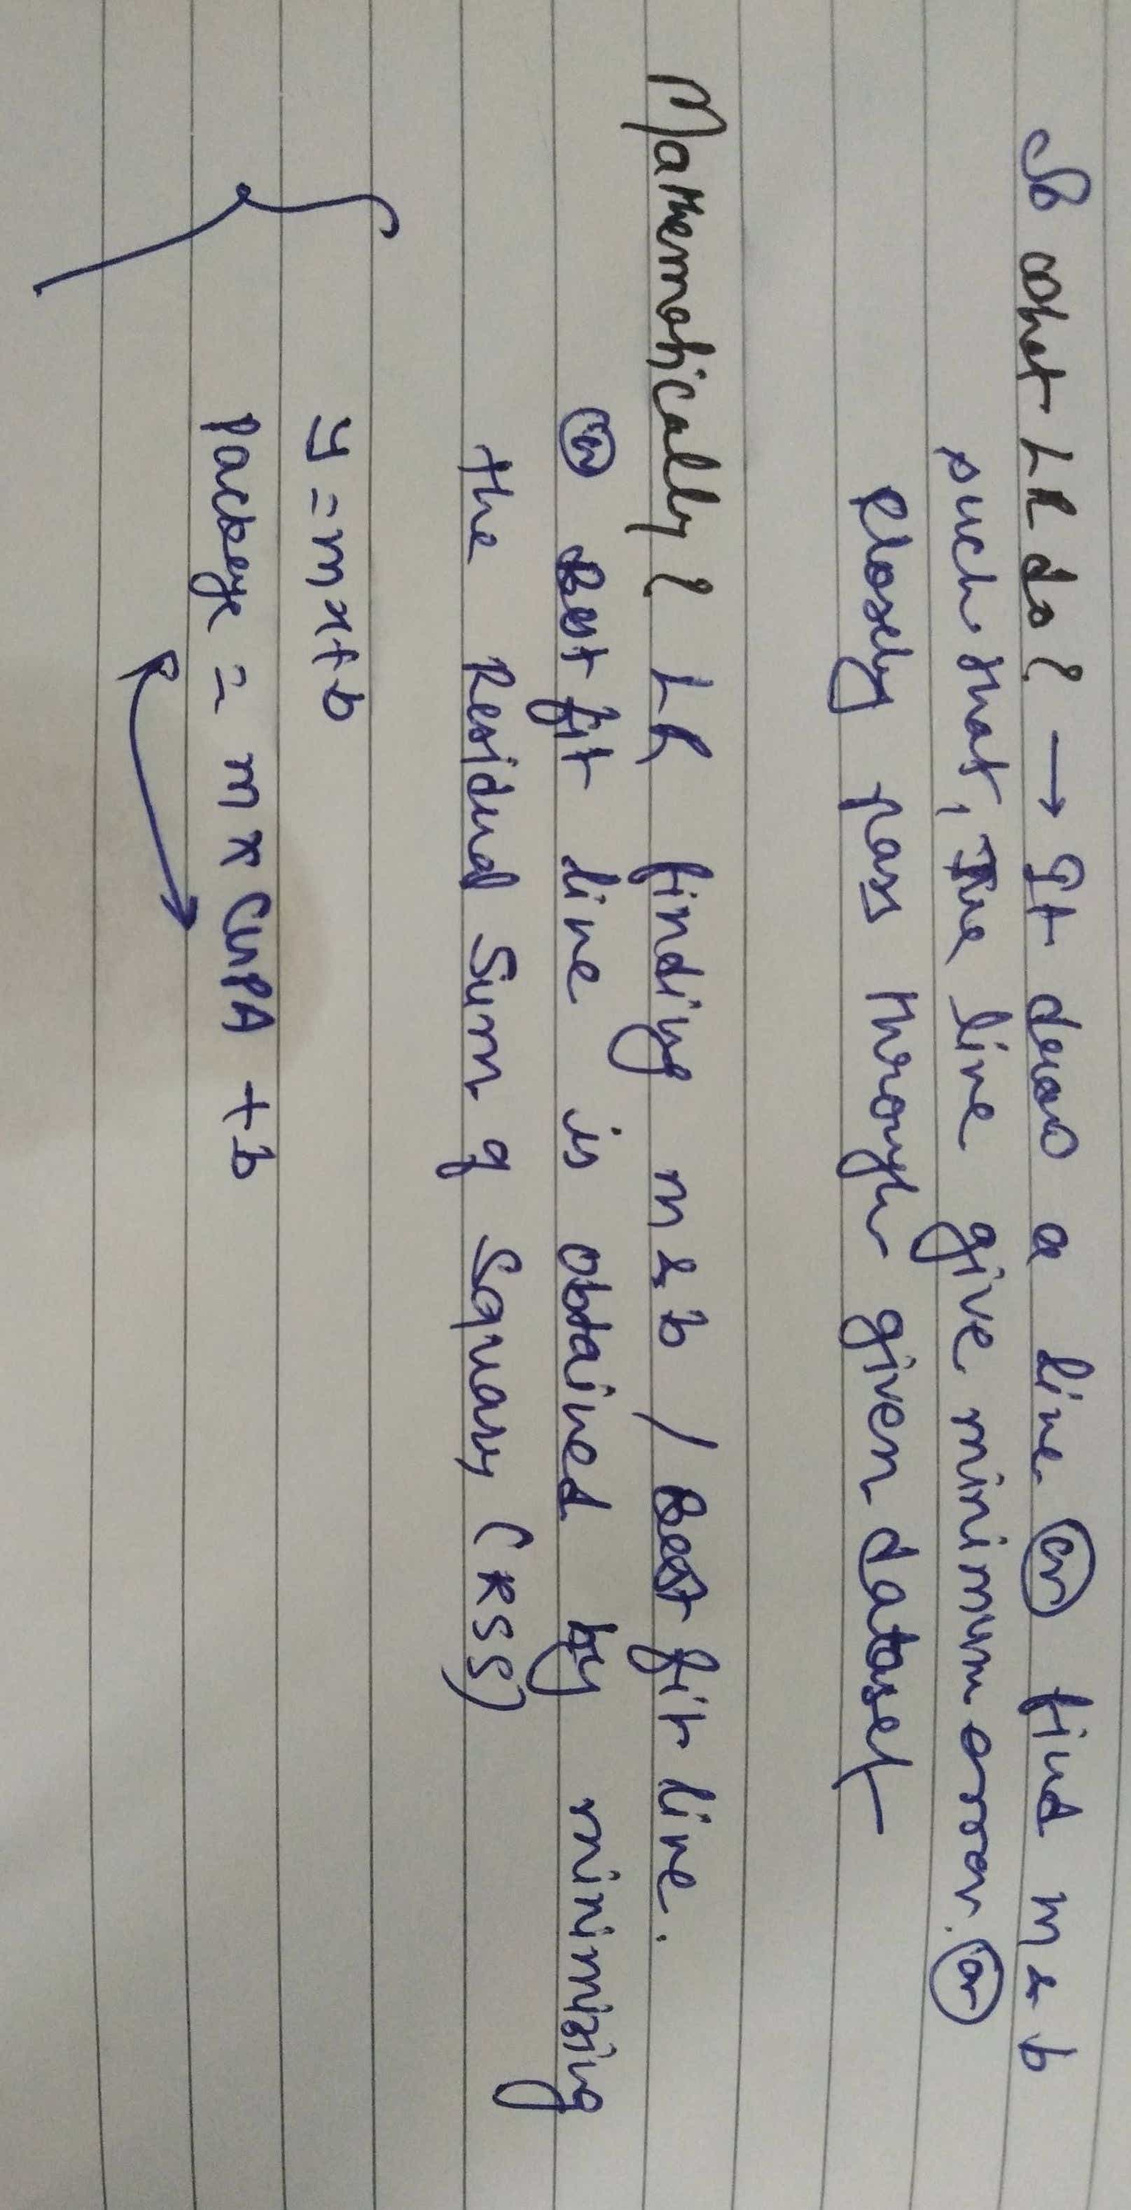 So what LR do? → It draw a line (or) find m & b
such that, The line give minimum error. (or)
Closely pass through given dataset
Mathematically? LR finding m & b / Best fit line.
Best fit line is obtained by minimizing
the Residual Sum of Square (RSS)
y = mx+b
Package = m x CGPA + b